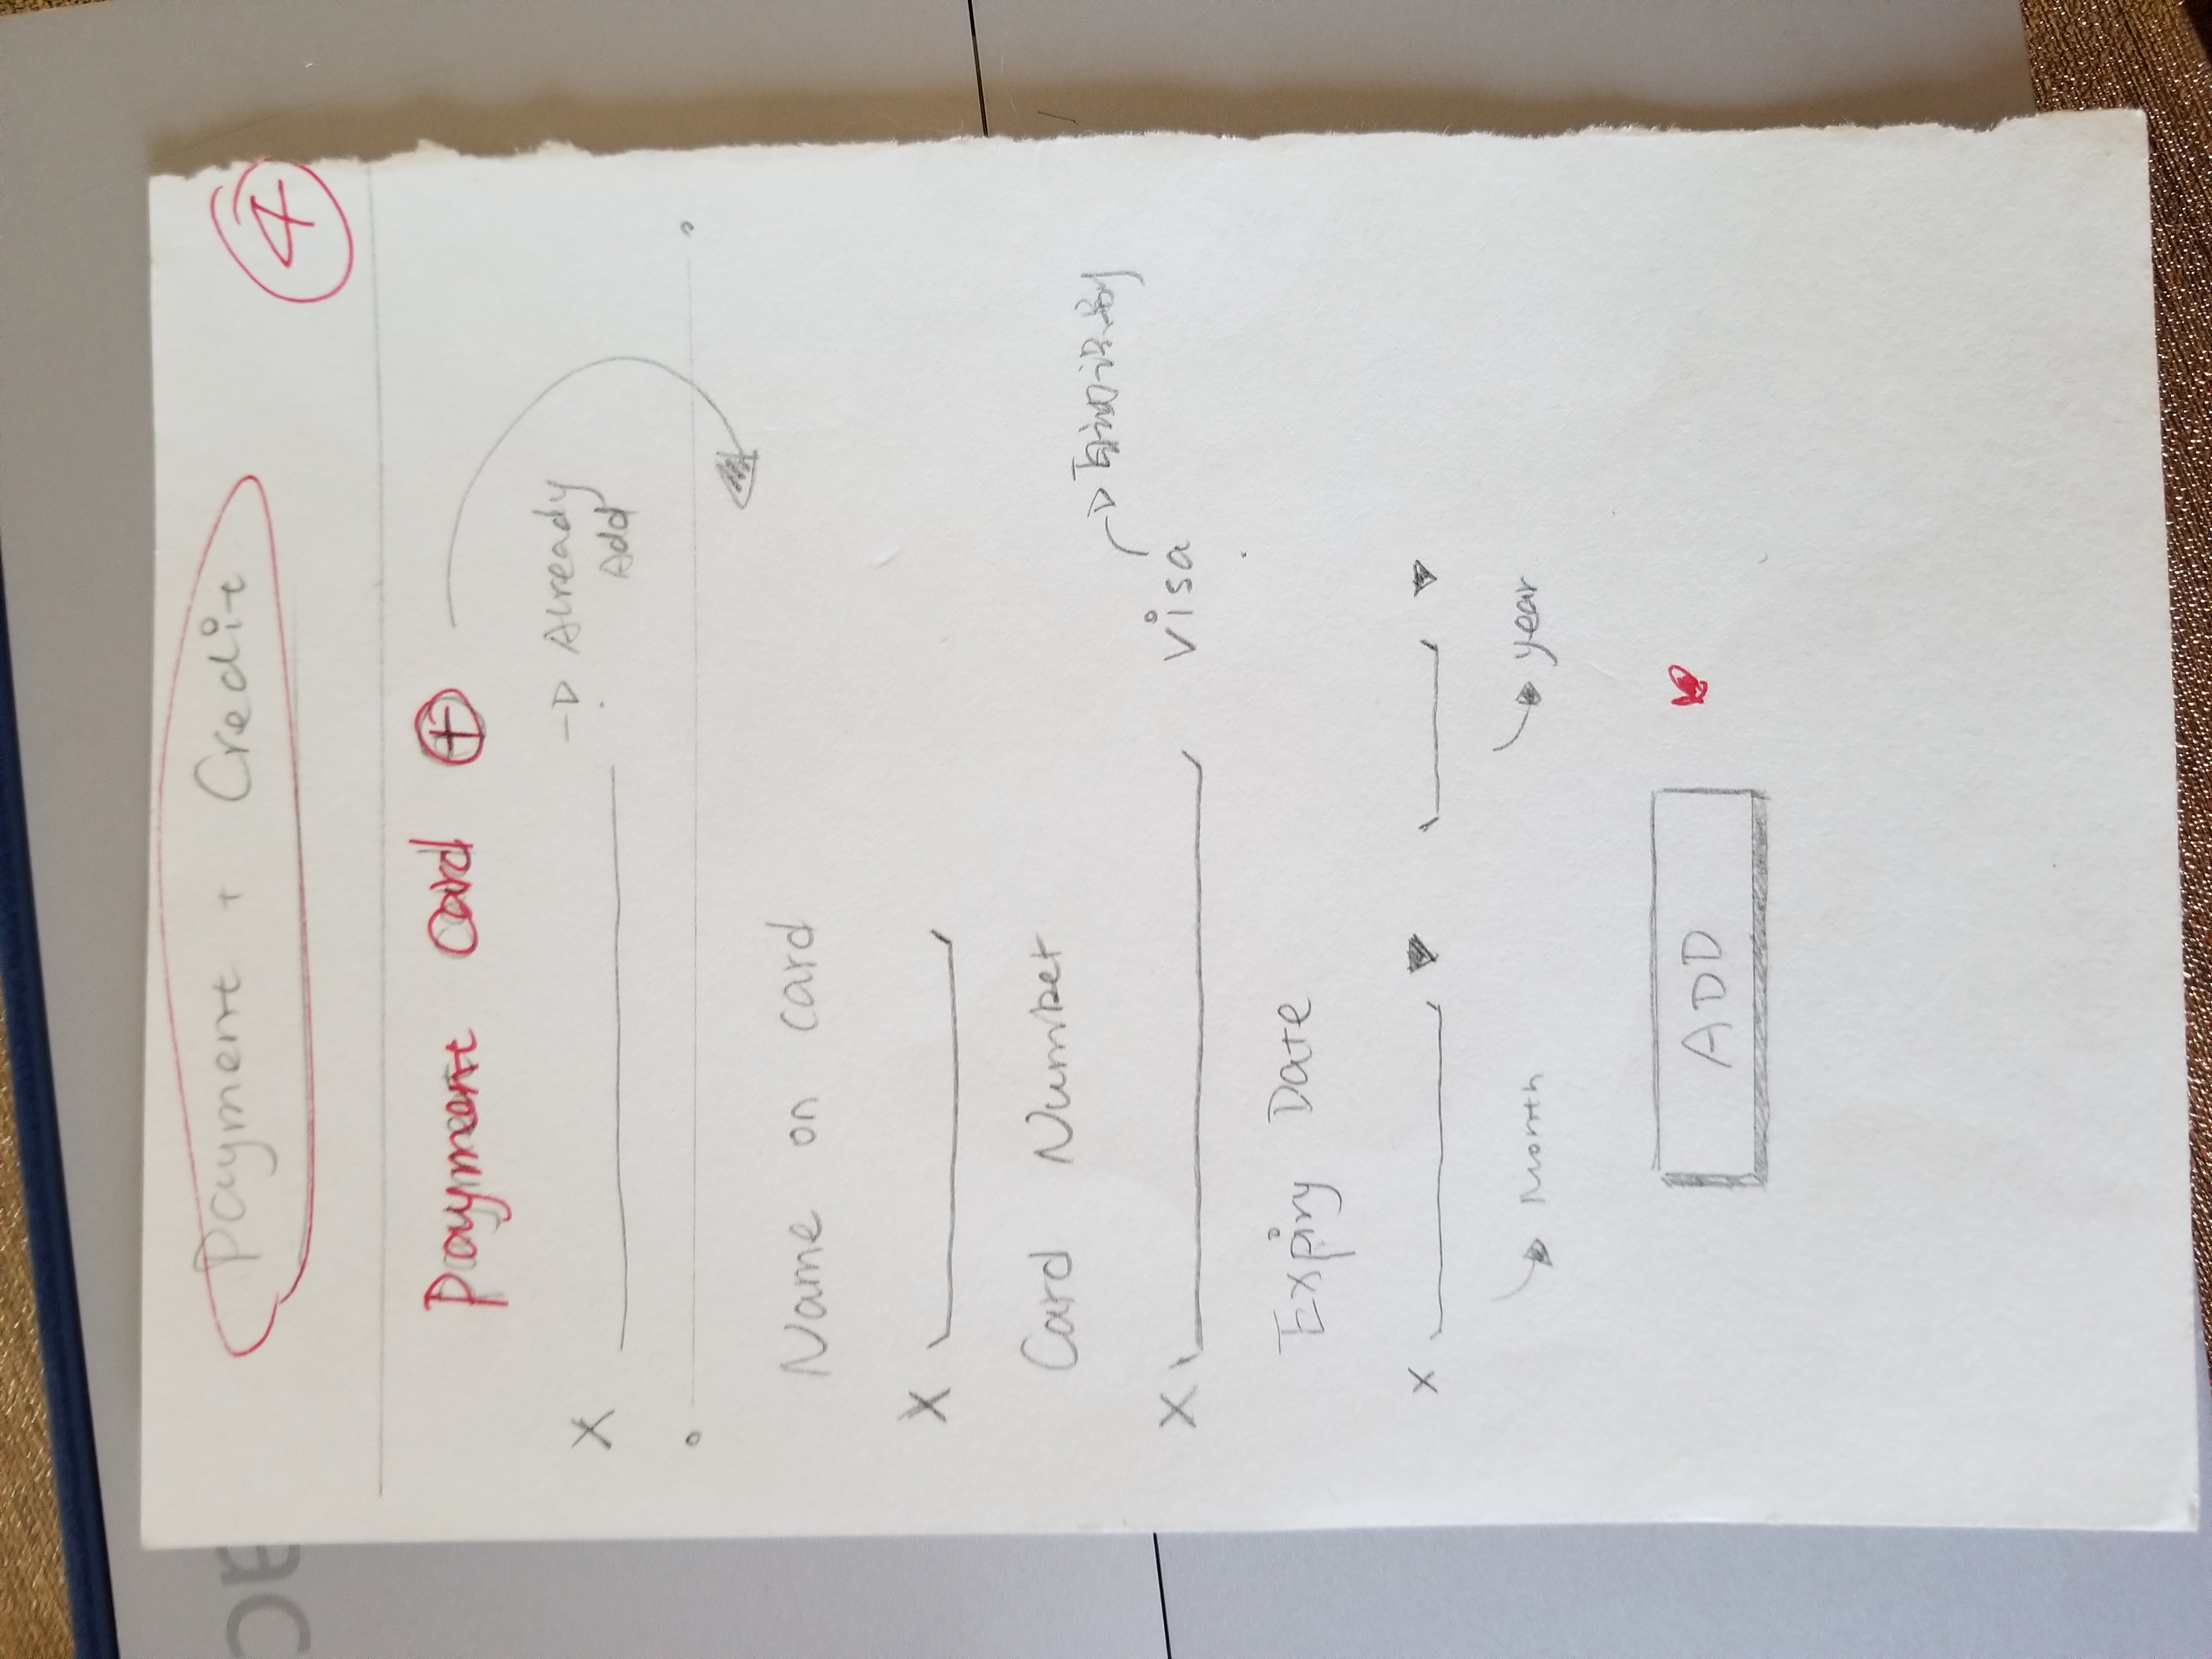 Payment + Credit
4
Payment Card +
X
Already
Add
Name on card
X
Card Number
自动识别
X
visa
Expiry Date
X
Month
year
ADD